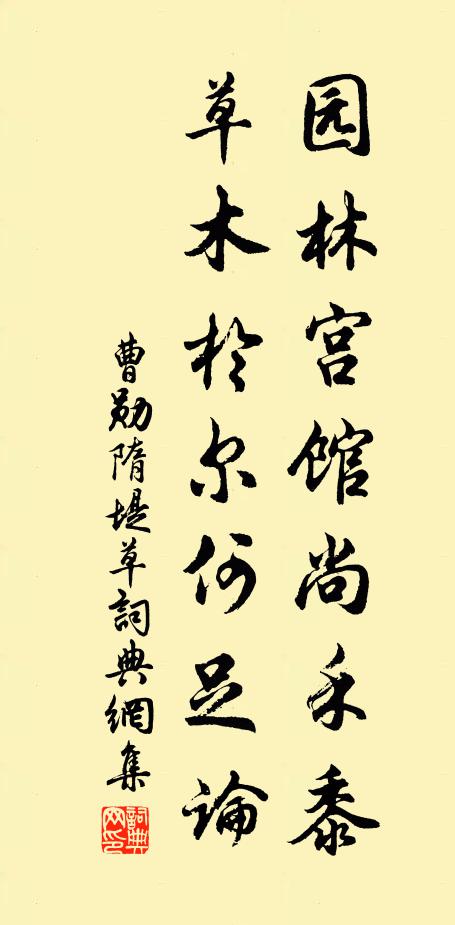 园林宫馆尚禾黍
草木於尔何足論
曹勋隋堤草詞典網集
詞典网印